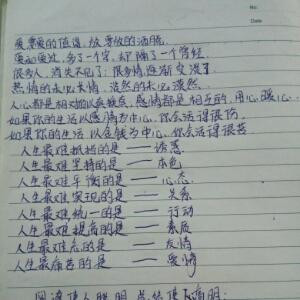 No.
Date
爱要爱的值得,放要放的洒脱。
爱和爱过,多了一个字,却隔了一个曾经
很多人,消失不见了;很多情,逐渐变淡了
热情的未必长情,淡然的未必漠然。
人心都是相对的以真换真,感情都是相互的,用心暖心。
如果你的生活以感情为中心,你会活得很伤
如果你的生活以金钱为中心,你会活得很苦
人生最难抵挡的是——诱惑
人生最难坚持的是——本色
人生最难平衡的是——心态
人生最难实现的是——关系
人生最难统一的是——行动
人生最难提高的是——素质
人生最难忘的是——友情
人生最痛苦的是——爱情